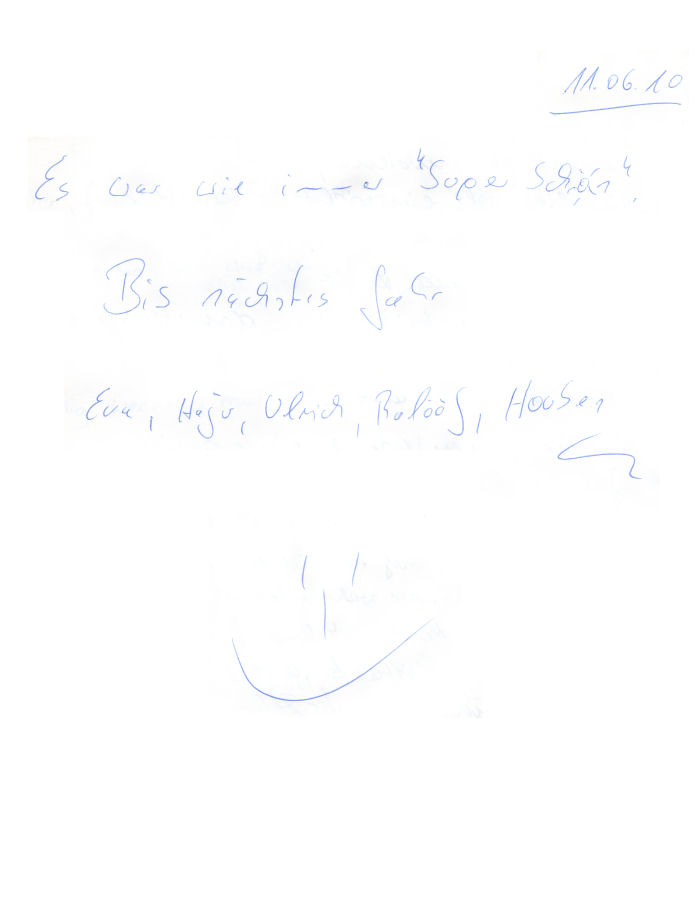 11.06.10
Es war wie immer "Super Schön".
Bis nächstes Jahr
Eva, Hajo, Ulrich,